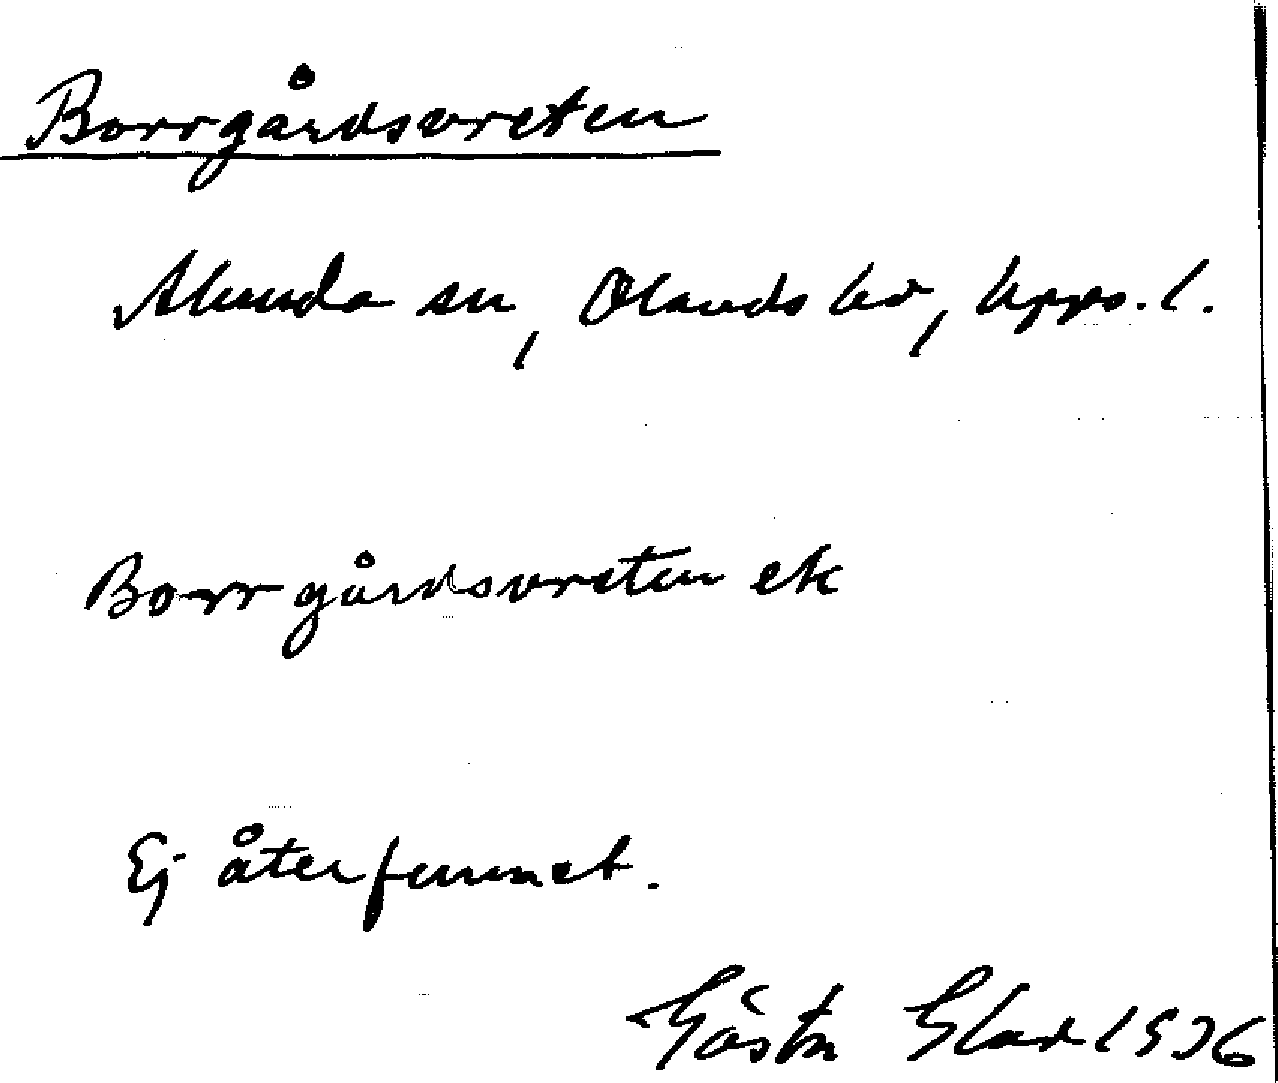 Borrgårdsvreten
Alunda sn, Olands hd, Upps. l.
Borrgårdsvreten ek
Ej återfunnet.
Gösta Glad 1936